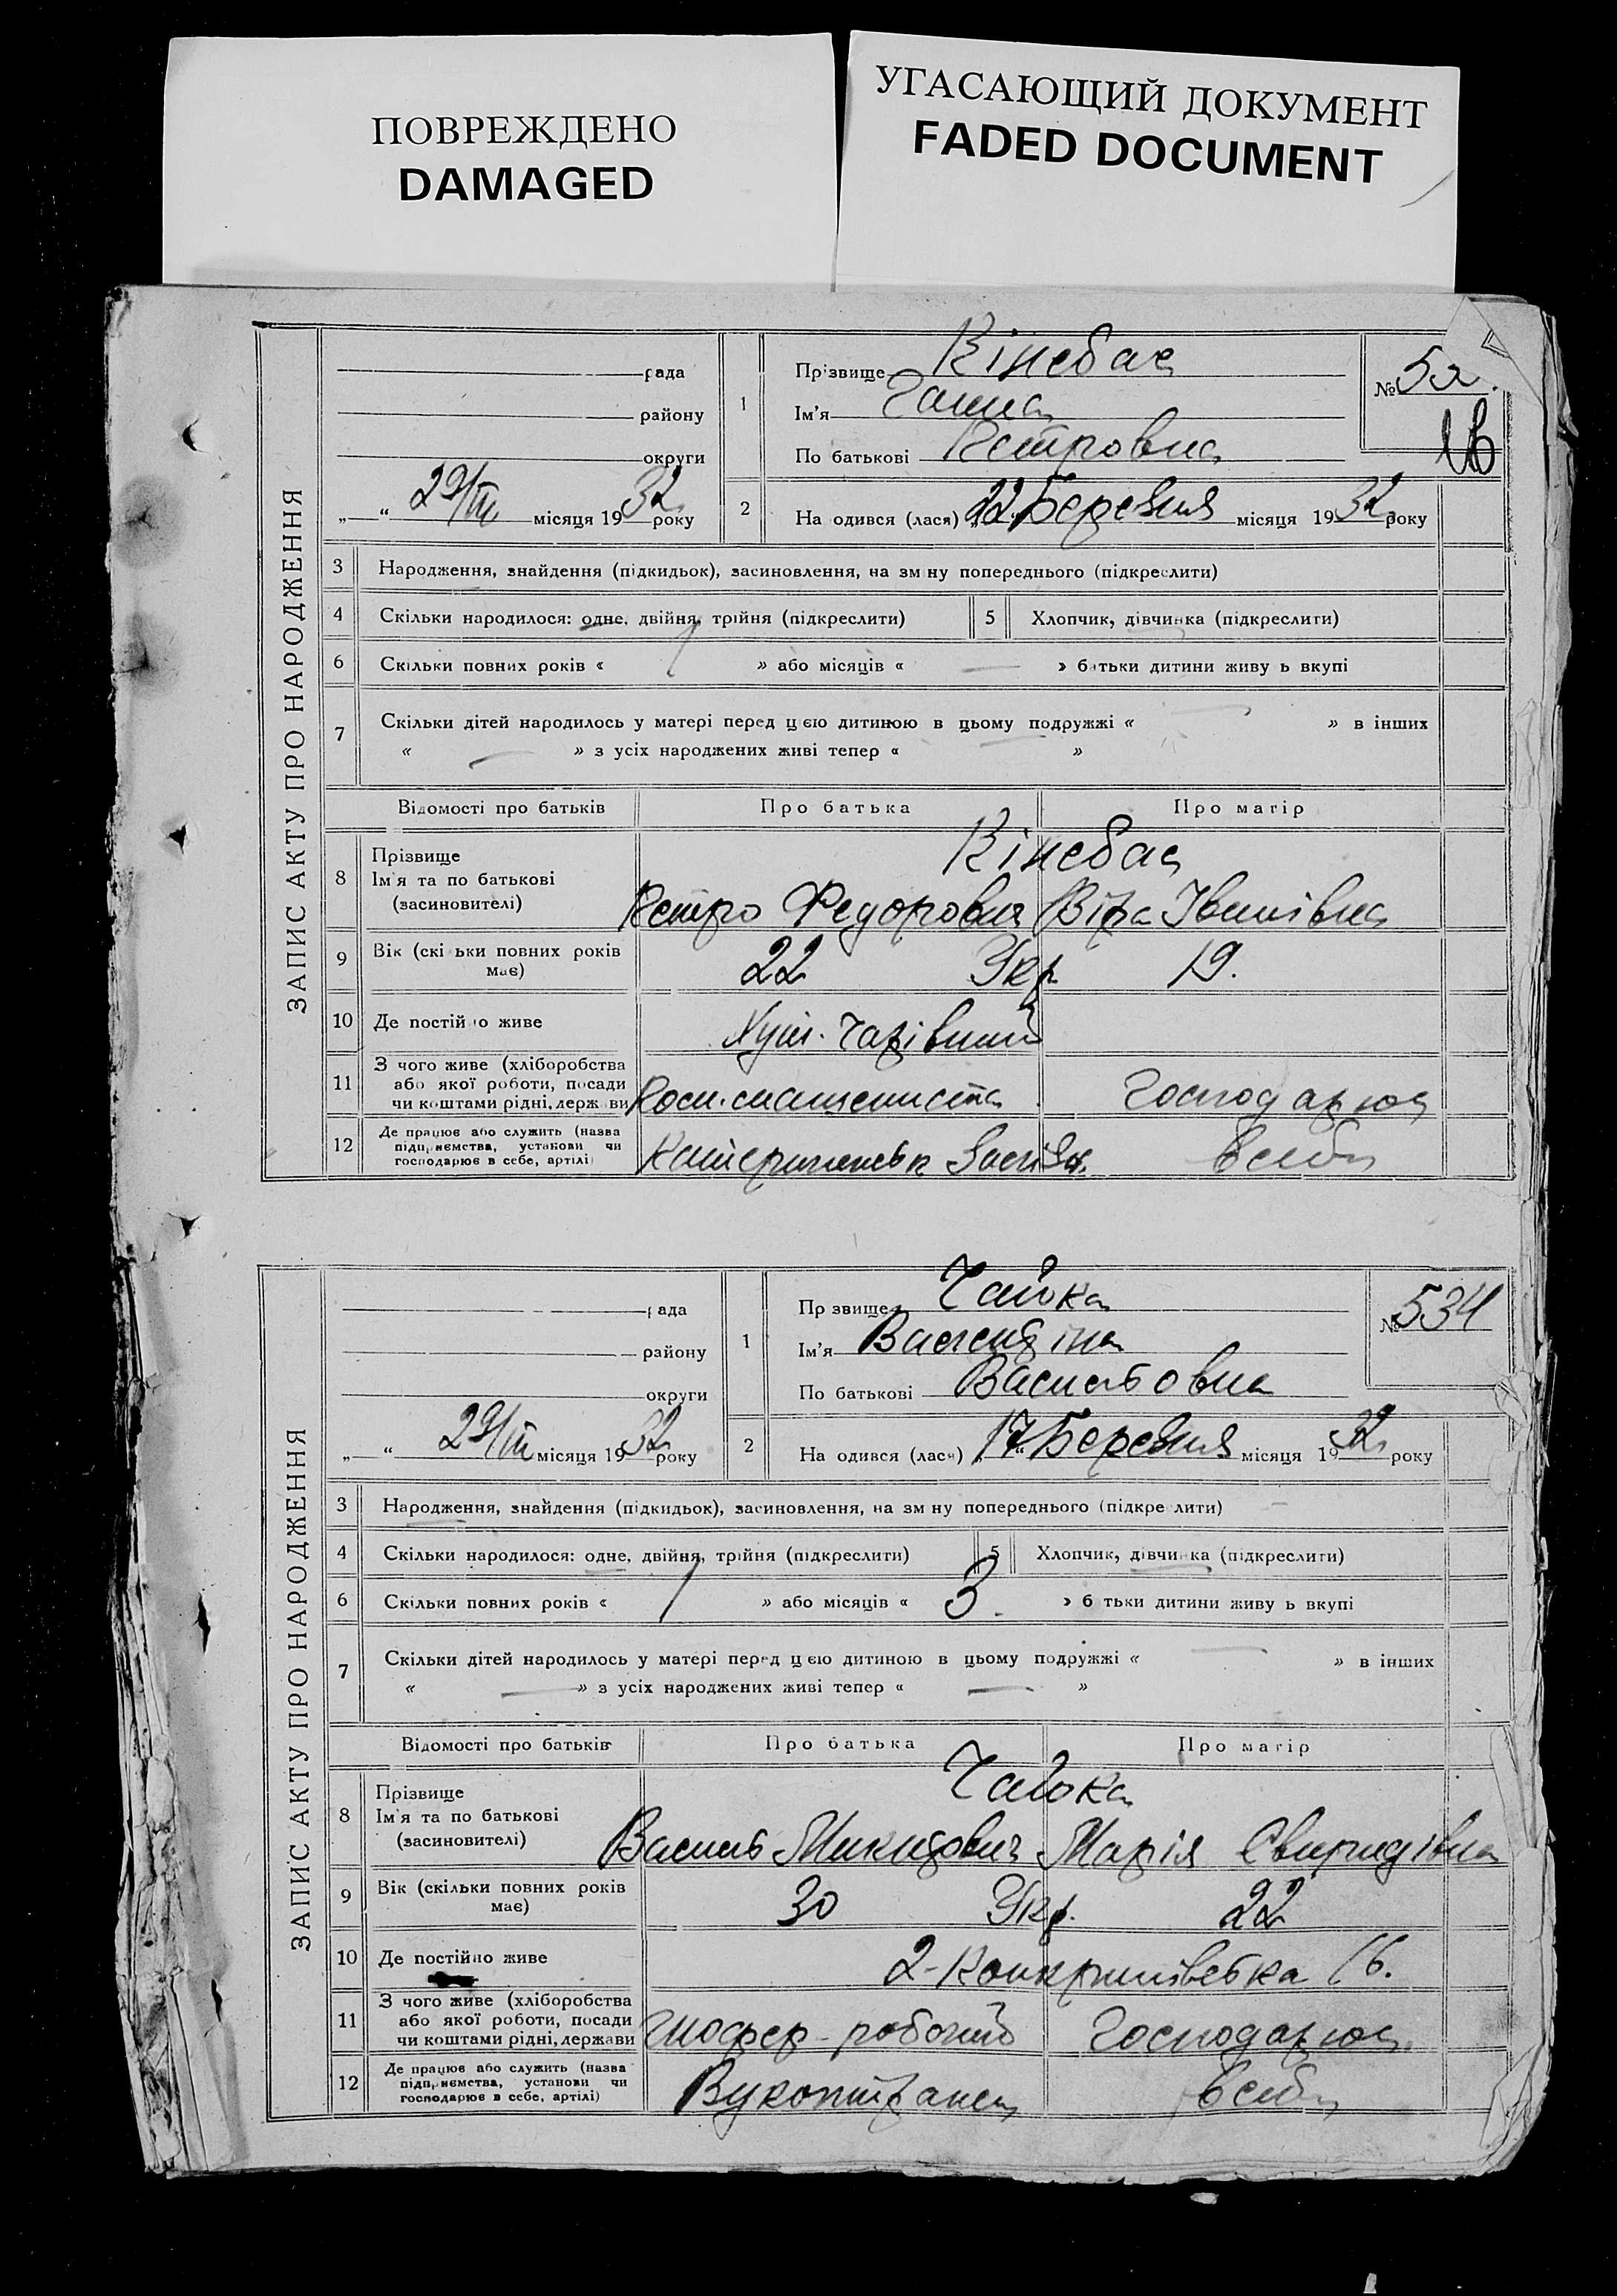 ПОВРЕЖДЕНО
DAMAGED
УГАСАЮЩИЙ ДОКУМЕНТ
FADED DOCUMENT
ЗАПИС АКТУ ПРО НАРОДЖЕННЯ
рада
району
округи
„ “ 29/III місяця 1932 року
1
Прізвище Кінебас
Ім'я Ганна
По батькові Петровна
№
2
На одився (лася) 22 Березня місяця 1932 року
3 Народження, знайдення (підкидьок), засиновлення, на зм ну попереднього (підкреслити)
4 Скільки народилося: одне, двійня, трійня (підкреслити) 5 Хлопчик, дівчинка (підкреслити)
6 Скільки повних років « 1 » або місяців « — » батьки дитини живу ь вкупі
7 Скільки дітей народилось у матері перед цією дитиною в цьому подружжі « — » в інших
« — » з усіх народжених живі тепер « »
Відомості про батьків Про батька Про матір
8 Прізвище Кінебас
Ім'я та по батькові
(засиновителі) Петро Федорович Віра Іванівна
9 Вік (скі ьки повних років має) 22 Укр. 19.
10 Де постій о живе
11 З чого живе (хліборобства
або якої роботи, посади
чи коштами рідні, держави Господарює
12 Де працює або служить (назва
підприємства, установи чи
господарює в себе, артілі) в себе
ЗАПИС АКТУ ПРО НАРОДЖЕННЯ
рада
району
округи
„ “ 29/III місяця 1932 року
1
Пр звище Чайка
Ім'я Валентіна
По батькові Васильовна
№ 534
2
На одився (лася) 17 Березня місяця 1932 року
3 Народження, знайдення (підкидьок), засиновлення, на зм ну попереднього (підкре лити)
4 Скільки народилося: одне, двійня, трійня (підкреслити) 5 Хлопчик, дівчинка (підкреслити)
6 Скільки повних років « 1 » або місяців « 3. » б тьки дитини живу ь вкупі
7 Скільки дітей народилось у матері перед цією дитиною в цьому подружжі « — » в інших
« — » з усіх народжених живі тепер « — »
Відомості про батьків Про батька Про матір
8 Прізвище Чайка
Ім'я та по батькові
(засиновителі) Василь Микитович Марія Свиридівна
9 Вік (скільки повних років має) 30 Укр. 22
10 Де постійно живе 16.
11 З чого живе (хліборобства
або якої роботи, посади
чи коштами рідні, держави Шофер - робочий Господарює.
12 Де працює або служить (назва
підприємства, установи чи
господарює в себе, артілі) в себе